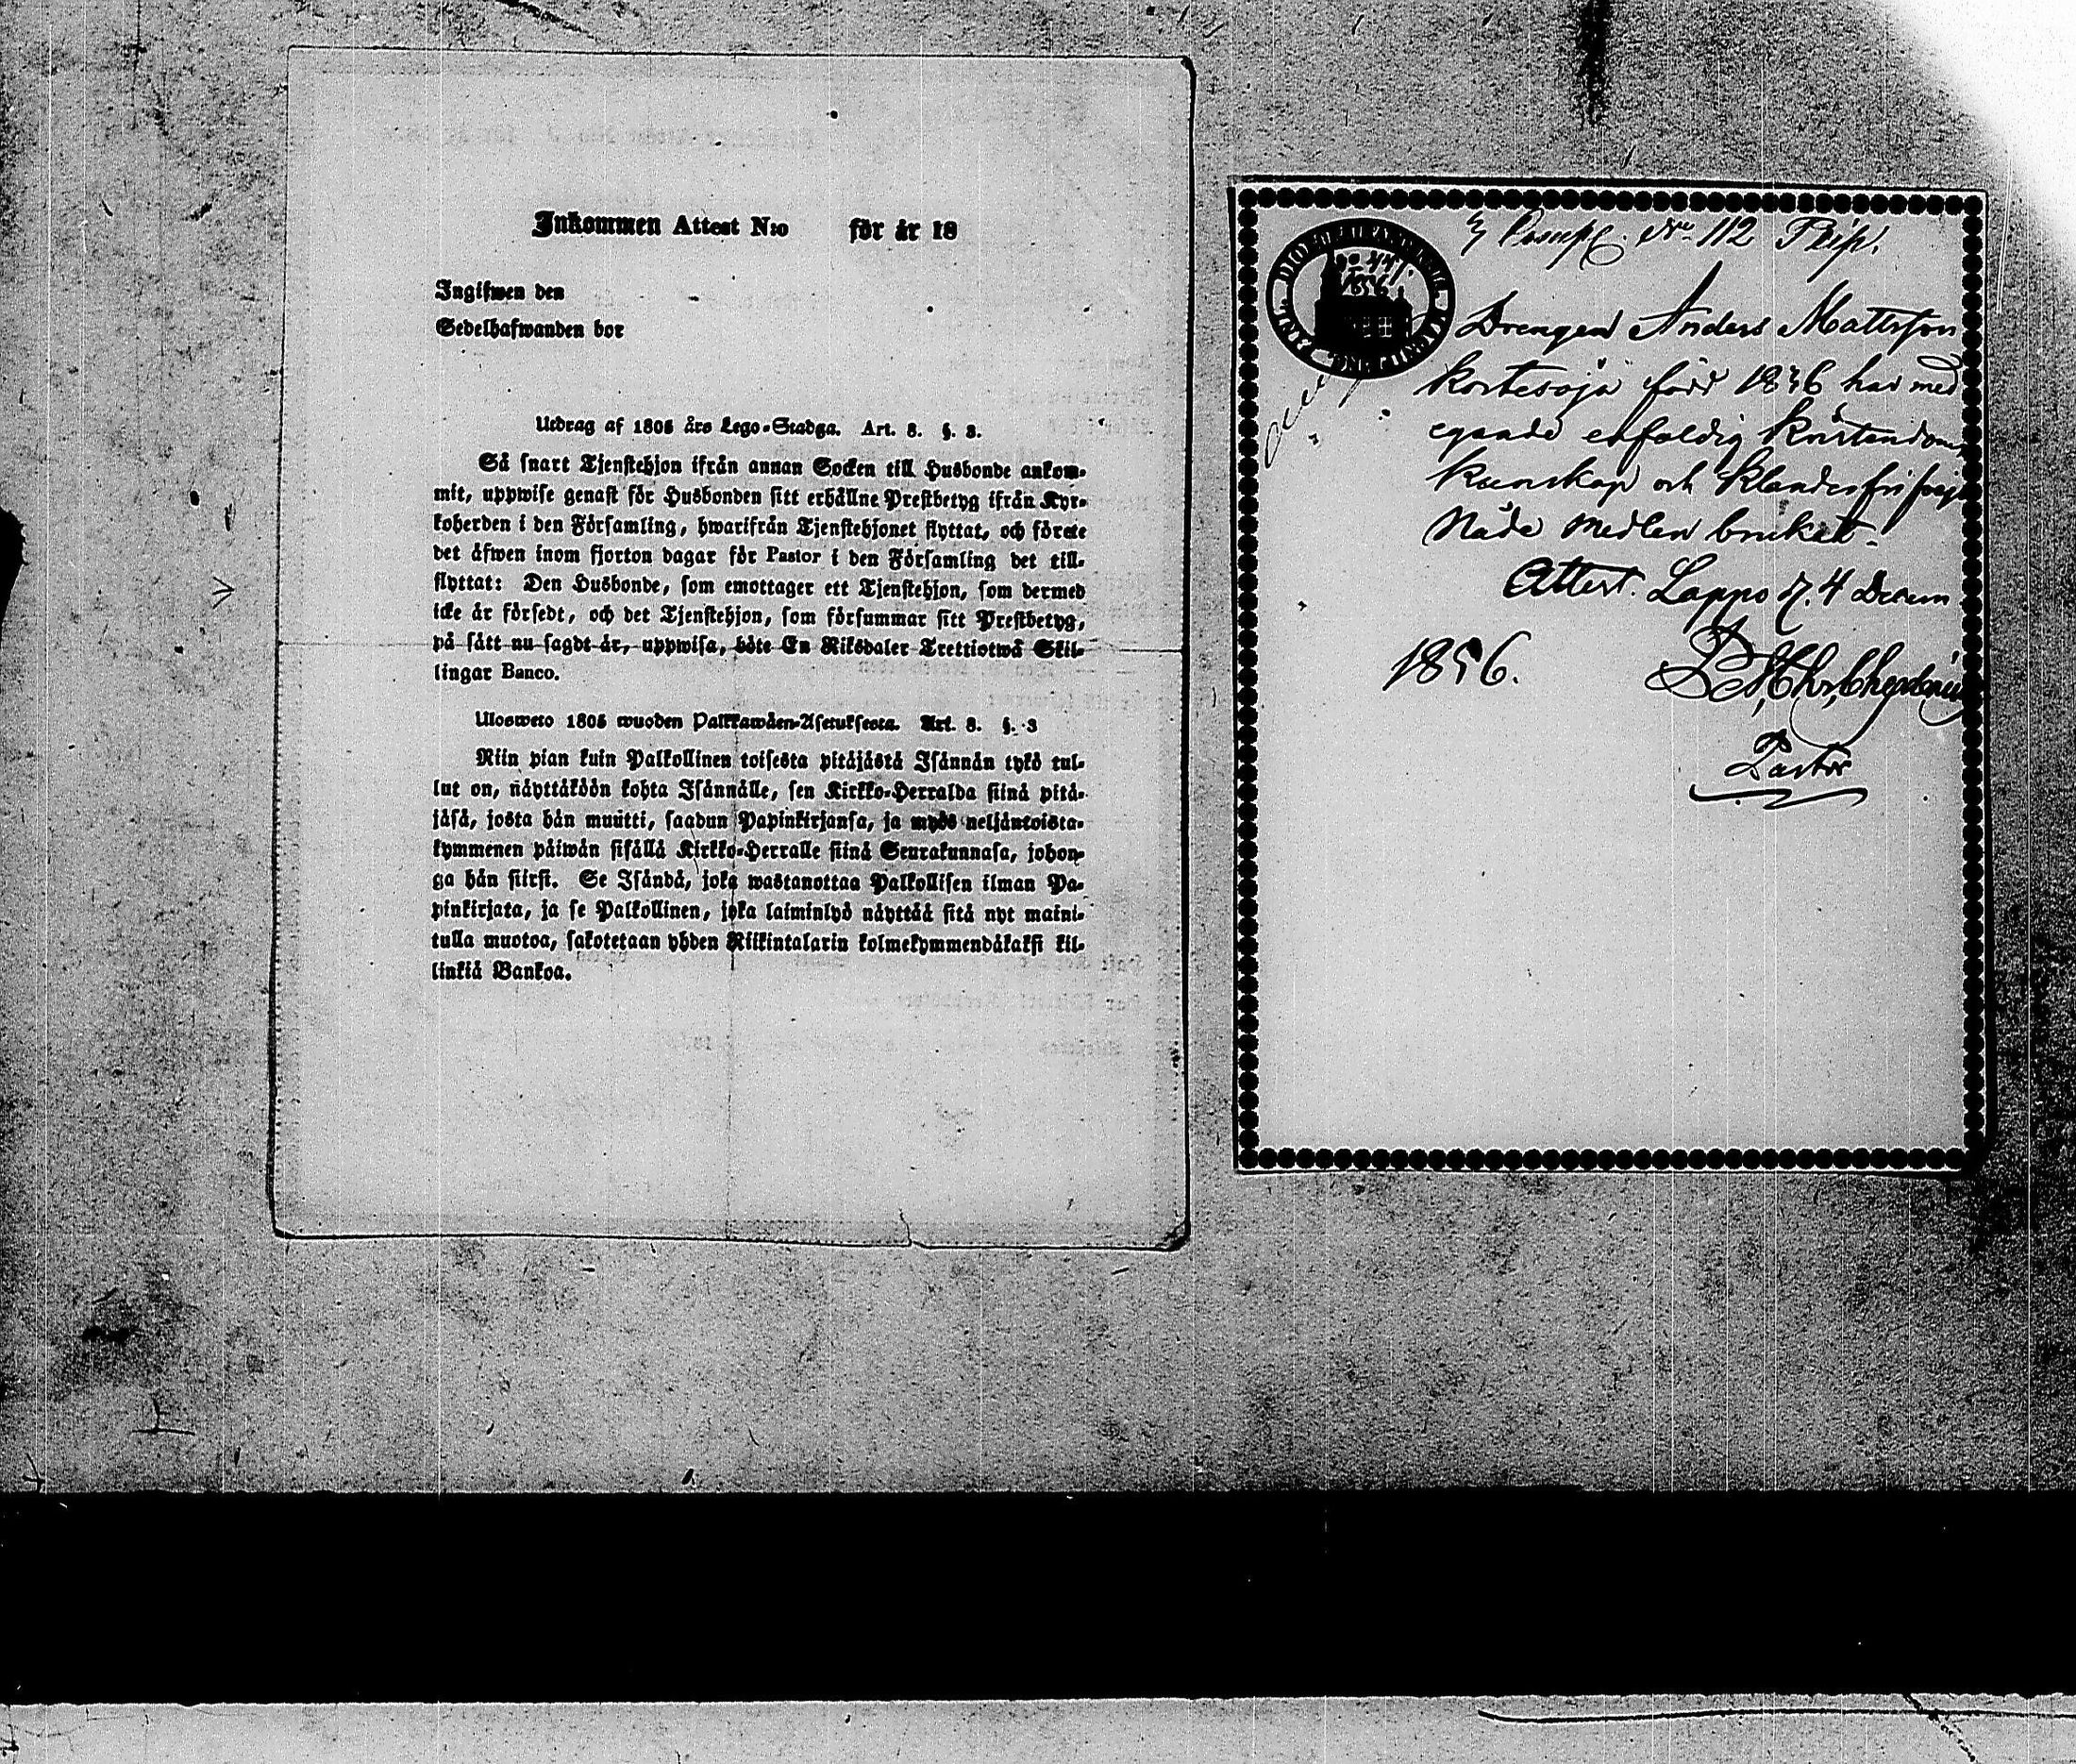 Inkommen Attest N:o för år 18
Ingifwen den
Sedelhafwanden bor
Utdrag af 1805 års Lego-Stadga. Art. 8. §. 3.
Så snart Tjenstehjon ifrån annan Socken till Husbonde ankom-
mit, uppwise genast för Husbonden sitt erhållne Prestbetyg ifrån Kyr-
koherden i den Församling, hwarifrån Tjenstehjonet flyttat, och förete
det äfwen inom fjorton dagar för Pastor i den Församling det till-
flyttat: Den Husbonde, som emottager ett Tjenstehjon, som dermed
icke är försedt, och det Tjenstehjon, som försummar sitt Prestbetyg,
på sätt nu sagdt är, uppwisa, böte En Riksdaler Trettiotwå Skil-
lingar Banco.
Ulosweto 1805 wuoden Palkkawäen-Asetuksesta. Art. 8. §. 3
Niin pian kuin Palkollinen toisesta pitäjästä Isännän tykö tul-
lut on, näyttäköön kohta Isännälle, sen Kirkko-Herralda siinä pitä-
jäsä, josta hän muutti, saadun Papinkirjansa, ja myös neljäntoista-
kymmenen päiwän sisällä Kirkko-Herralle siinä Seurakunnasa, johon-
ga hän siirsi. Se Isändä, joka wastanottaa Palkollisen ilman Pa-
pinkirjata, ja se Palkollinen, joka laiminlyö näyttää sitä nyt maini-
tulla muotoa, sakotetaan yhden Riikintalarin kolmekymmendäkaksi kil-
linkiä Bankoa.
No 112
Drengen Anders Mattsson
Kortesoja född 1836 har med
egande enfaldig Kristendoms
Kunskap och Klanderfri frejd
Nåde medlen brukat.
Attest. Lappo d. 4 Decem
1856.
Pastor